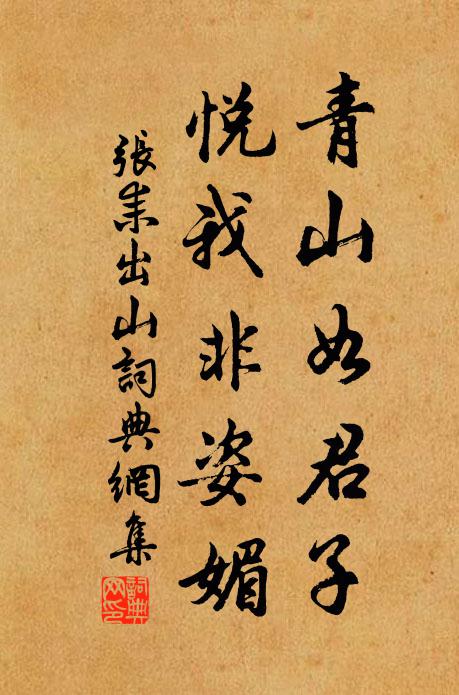 青山如君子
悦我非姿媚
張耒出山詞典網集
詞典網印